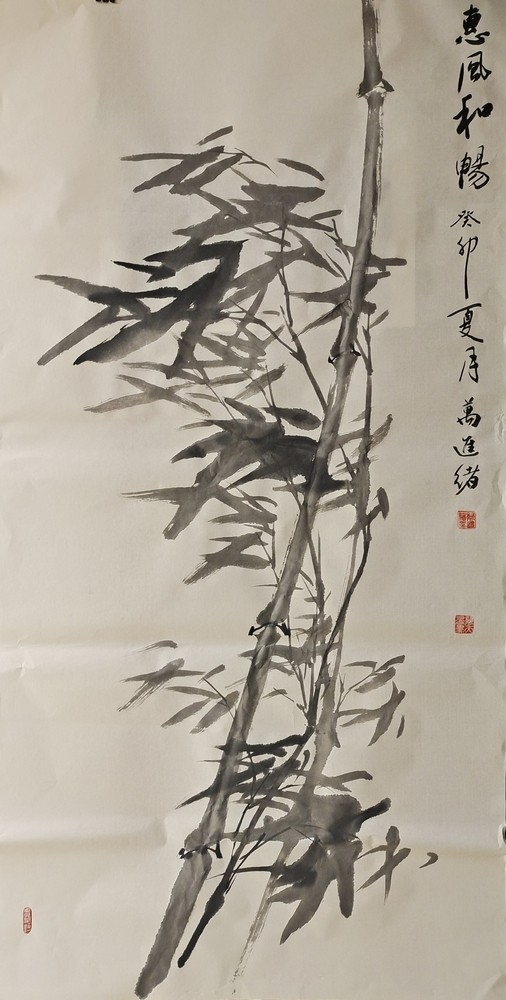 惠风和畅 癸卯夏月 萬進緒